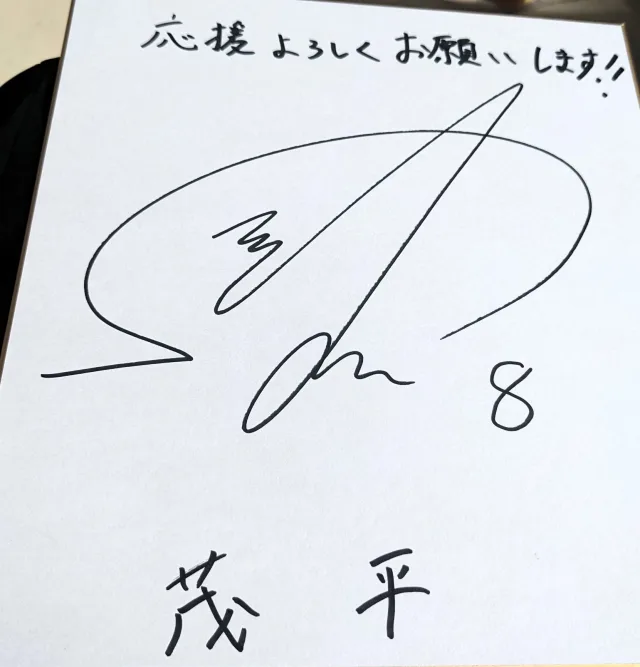 応援よろしくお願いします!!
8
茂平